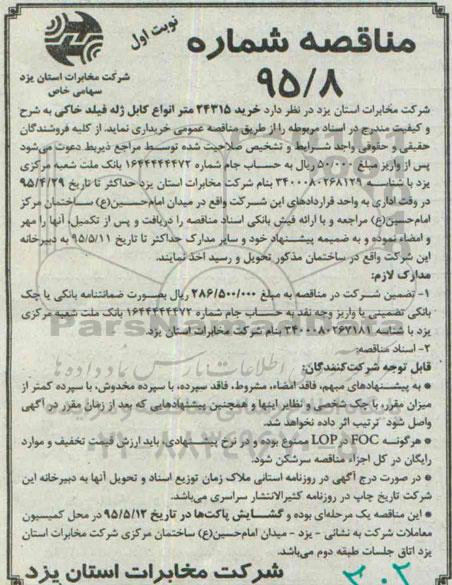 نوبت اول
مناقصه شماره
۹۵/۸
شرکت مخابرات استان یزد
سهامی خاص
شرکت مخابرات استان یزد در نظر دارد خرید ۲۴۳۱۵ متر انواع کابل ژله فیلد خاکی به شرح
و کیفیت مندرج در اسناد مربوطه را از طریق مناقصه عمومی خریداری نماید. از کلیه فروشندگان
حقیقی و حقوقی واجد شرایط و تشخیص صلاحیت شده توسط مراجع ذیربط دعوت می‌شود
پس از واریز مبلغ ۵۰۰/۰۰۰ ریال به حساب جام شماره ۱۶۴۴۴۴۴۴۷۲ بانک ملت شعبه مرکزی
یزد با شناسه ۳۴۰۰۰۸۰۲۶۸۱۲۹ بنام شرکت مخابرات استان یزد حداکثر تا تاریخ ۹۵/۴/۲۹
در وقت اداری به واحد قراردادهای این شرکت واقع در میدان امام‌حسین(ع) ساختمان مرکز
امام‌حسین(ع) مراجعه و با ارائه فیش بانکی اسناد مناقصه را دریافت و پس از تکمیل، آنها را مهر
و امضاء نموده و به ضمیمه پیشنهاد خود و سایر مدارک حداکثر تا تاریخ ۹۵/۵/۱۱ به دبیرخانه
این شرکت واقع در ساختمان مذکور تحویل و رسید اخذ نمایند.
مدارک لازم:
۱- تضمین شرکت در مناقصه به مبلغ ۲۸۶/۵۰۰/۰۰۰ ریال بصورت ضمانتنامه بانکی یا چک
بانکی تضمینی یا واریز وجه نقد به حساب جام شماره ۱۶۴۴۴۴۴۴۷۲ بانک ملت شعبه مرکزی
یزد با شناسه ۳۴۰۰۰۸۰۲۶۷۱۸۱ بنام شرکت مخابرات استان یزد.
۲- اسناد مناقصه:
قابل توجه شرکت‌کنندگان:
● به پیشنهادهای مبهم، فاقد امضاء، مشروط، فاقد سپرده، با سپرده مخدوش، با سپرده کمتر از
میزان مقرر، با چک شخصی و نظایر اینها و همچنین پیشنهادهایی که بعد از زمان مقرر در آگهی
واصل شود ترتیب اثر داده نخواهد شد.
● هرگونه FOC در LOP ممنوع بوده و در نرخ پیشنهادی، باید ارزش قیمت تخفیف و موارد
رایگان در کل اجزاء مناقصه سرشکن شود.
● در صورت درج آگهی در روزنامه استانی ملاک زمان توزیع اسناد و تحویل آنها به دبیرخانه این
شرکت تاریخ چاپ در روزنامه کثیرالانتشار سراسری می‌باشد.
● این مناقصه یک مرحله‌ای بوده و گشایش پاکت‌ها در تاریخ ۹۵/۵/۱۲ در محل کمیسیون
معاملات شرکت به نشانی - یزد - میدان امام‌حسین(ع) ساختمان مرکزی شرکت مخابرات استان
یزد اتاق جلسات طبقه دوم می‌باشد.
شرکت مخابرات استان یزد